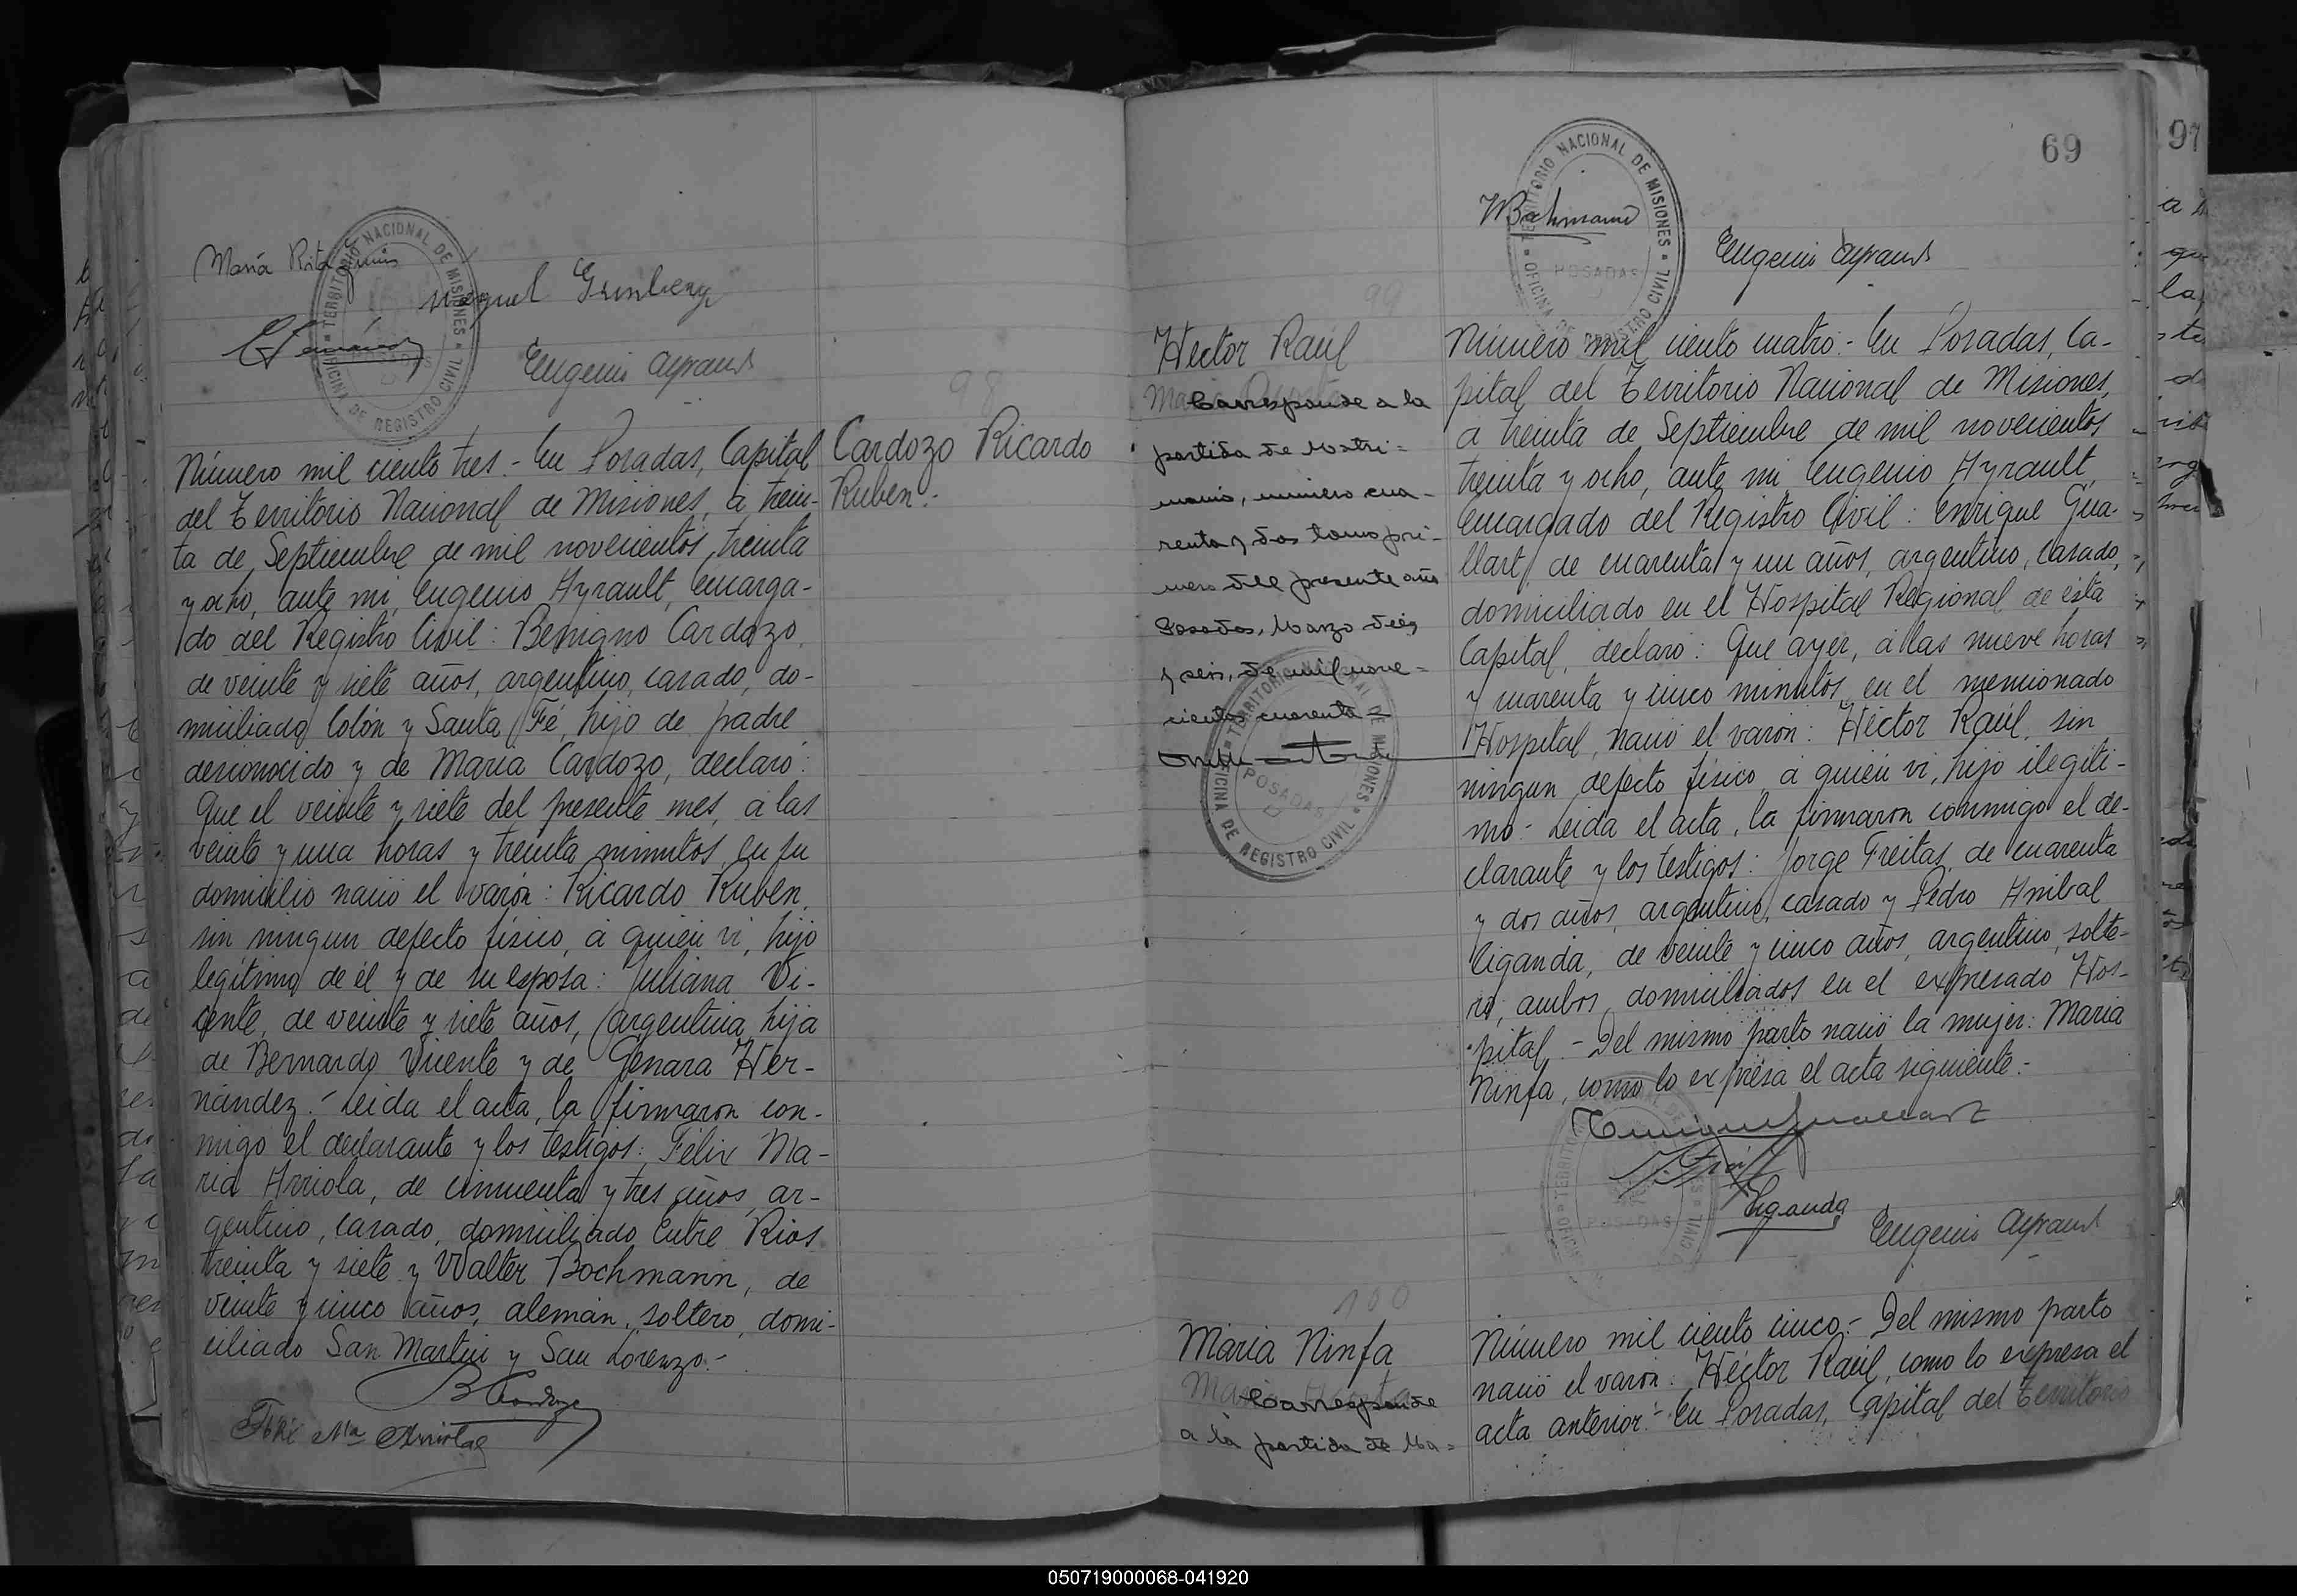 María Rita
Miguel Grinberg
Eugenio Ayrault
98
Cardozo Ricardo
Ruben.-
Número mil ciento tres.- En Posadas, Capital
del Territorio Nacional de Misiones, a trein-
ta de Septiembre de mil novecientos treinta
y ocho, ante mi, Eugenio Ayrault, encarga-
do del Registro Civil: Benigno Cardozo,
de veinte y siete años, argentino, casado, do-
miciliado Colón y Santa Fé, hijo de padre
desconocido y de María Cardozo, declaró:
Que el veinte y siete del presente mes, a las
veinte y una horas y treinta minutos, en su
domicilio nació el varón: Ricardo Ruben,
sin ningun defecto físico, a quién vi, hijo
legítimo de él y de su esposa: Juliana Vi-
cente, de veinte y siete años, argentina, hija
de Bernardo Vicente y de Genara Her-
nández.- Leida el acta, la firmaron con-
migo el declarante y los testigos: Félix Ma-
ría Arriola, de cincuenta y tres años, ar-
gentino, casado, domiciliado Entre Rios
treinta y siete y Walter Bochmann, de
veinte y cinco años, alemán, soltero, domi-
ciliado San Martin y San Lorenzo.-
B Cardozo
Félix Ma Arriola
TERRITORIO NACIONAL DE MISIONES
OFICINA DE REGISTRO CIVIL
POSADAS
69
97
WBochmann
Eugenio Ayrault
99
Hector Raúl
Corresponde a la
partida de Matri-
monio, número cua-
renta y dos tomo pri-
mero del presente año
Posadas, Marzo diez
y seis, de mil nove-
cientos cuarenta
TERRITORIO NACIONAL DE MISIONES
OFICINA DE REGISTRO CIVIL
POSADAS
Número mil ciento cuatro.- En Posadas, Ca-
pital del Territorio Nacional de Misiones,
a treinta de Septiembre de mil novecientos
treinta y ocho, ante mi Eugenio Ayrault,
encargado del Registro Civil: Enrique Gua-
llart, de cuarenta y un años, argentino, casado,
domiciliado en el Hospital Regional de ésta
Capital, declaró: Que ayer, a las nueve horas
y cuarenta y cinco minutos, en el mencionado
Hospital, nació el varón: Héctor Raúl, sin
ningun defecto físico, a quién vi, hijo ilegíti-
mo.- Leida el acta, la firmaron conmigo el de-
clarante y los testigos: Jorge Freitas, de cuarenta
y dos años, argentino, casado y Pedro Anibal
Ciganda, de veinte y cinco años, argentino, solte-
ro, ambos, domiciliados en el expresado Hos-
pital.- Del mismo parto nació la mujer: María
Ninfa, como lo expresa el acta siguiente.-
Enrique Guallart
Ciganda
Eugenio Ayrault
100
María Ninfa
Corresponde
a la partida de Ma-
Número mil ciento cinco.- Del mismo parto
nació el varón: Héctor Raúl, como lo expresa el
acta anterior.- En Posadas, Capital del Territorio
050719000068-041920